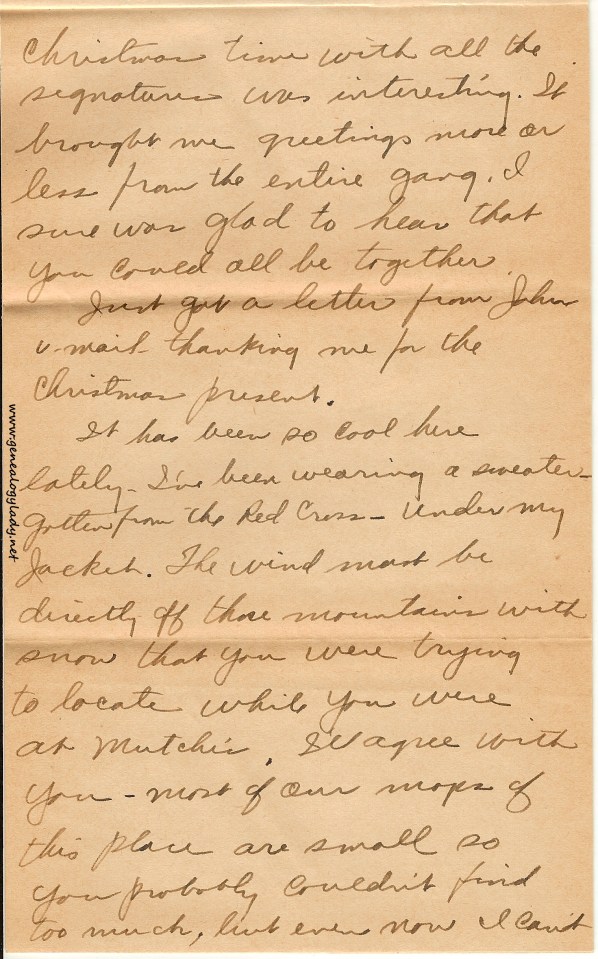 Christmas time with all the
signatures was interesting. It
brought me greetings more or
less from the entire gang. I
sure was glad to hear that
you could all be together.
Just got a letter from John
v-mail thanking me for the
Christmas present.
It has been so cool here
lately - I've been wearing a sweater -
gotten from the Red Cross - under my
jacket. The wind must be
directly off those mountains with
snow that you were trying
to locate while you were
at Mutchie's. I'll agree with
you - most of our maps of
this place are small so
you probably couldn't find
too much, but even now I can't
www.genealogylady.net